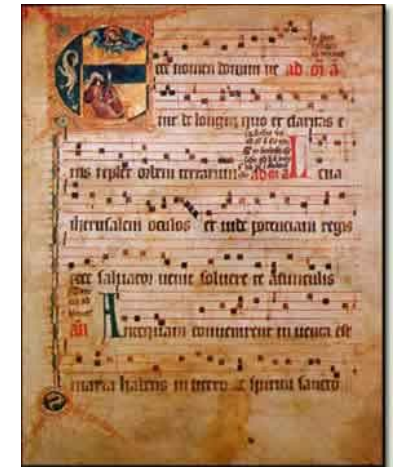 cce nomen domini ue ad oi a
nit de longinq̄uo et claritas e
ius replet orbem terrarum ad oi a Leua
iherusalem oculos et uide potenciam regis
ecce saluator uenit soluere te a uinculis
an Antequam conuenirent inuenta est
maria habens in utero de spiritu sancto